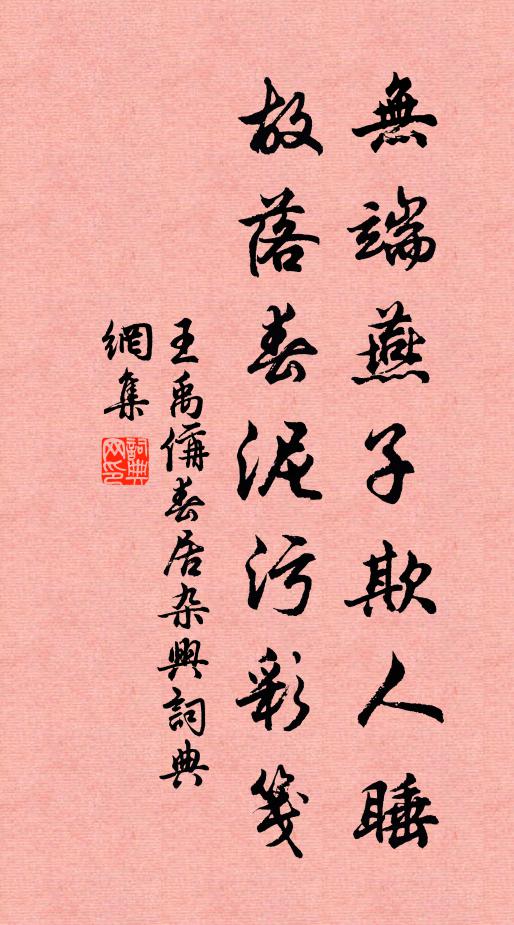 無端燕子欺人睡
故落春泥污彩箋
王禹偁春居杂興詞典
網集
詞典網印